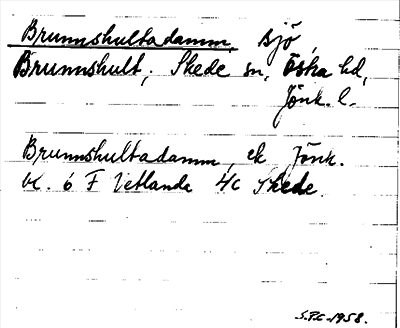 Brunnshultadamm, sjö,
Brunnshult, Skede sn, Östra hd,
Jönk. l.
Brunnshultadamm, ek Jönk.
bl. 6 F Vetlanda 4c Skede.
S.P.C-1958.